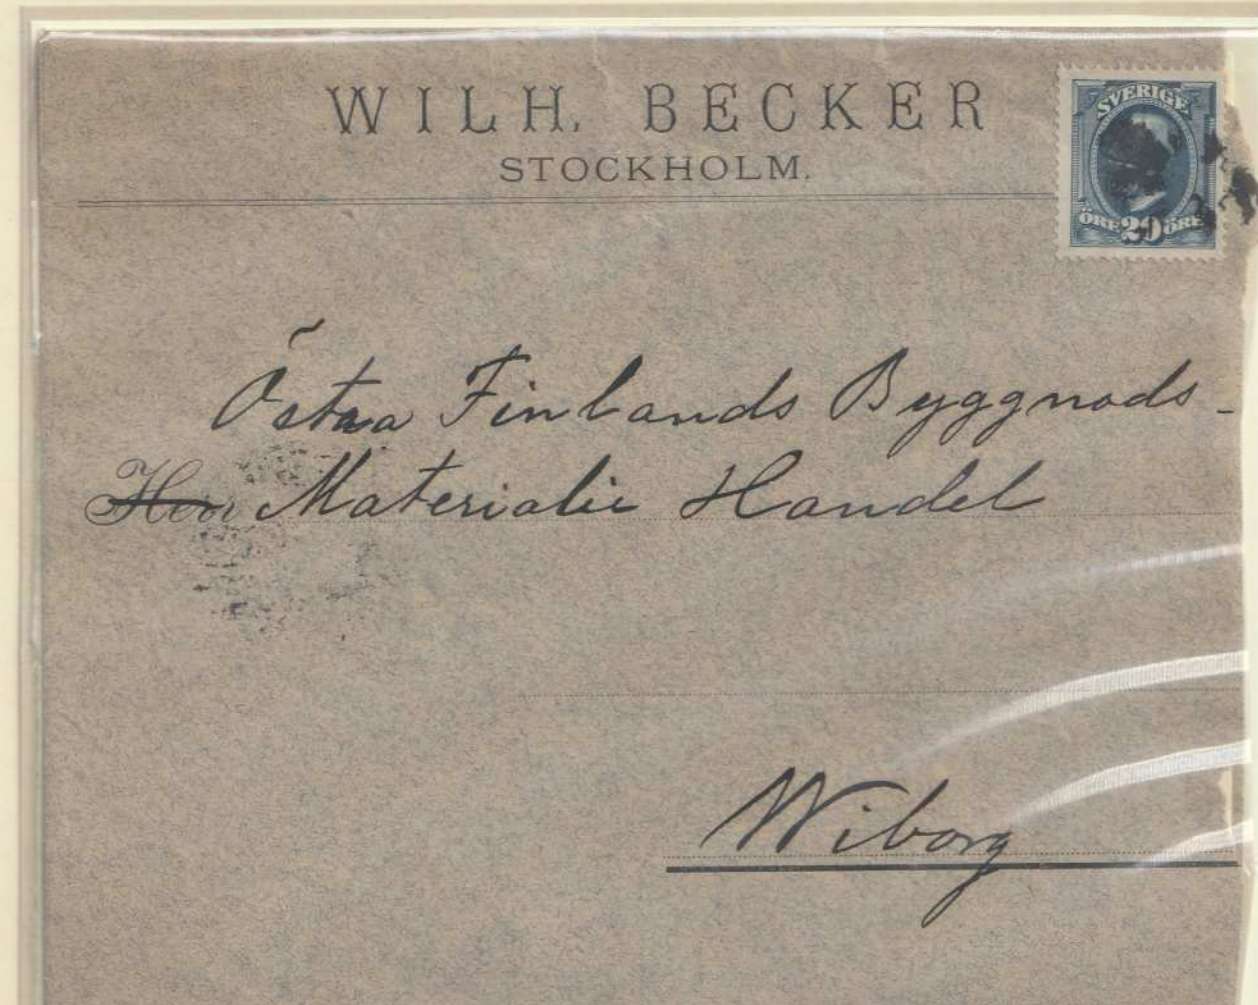 WILH. BECKER
STOCKHOLM.
SVERIGE
ÖRE 20 ÖRE
Östra Finlands Byggnads-
Herr Materialie Handel
Wiborg